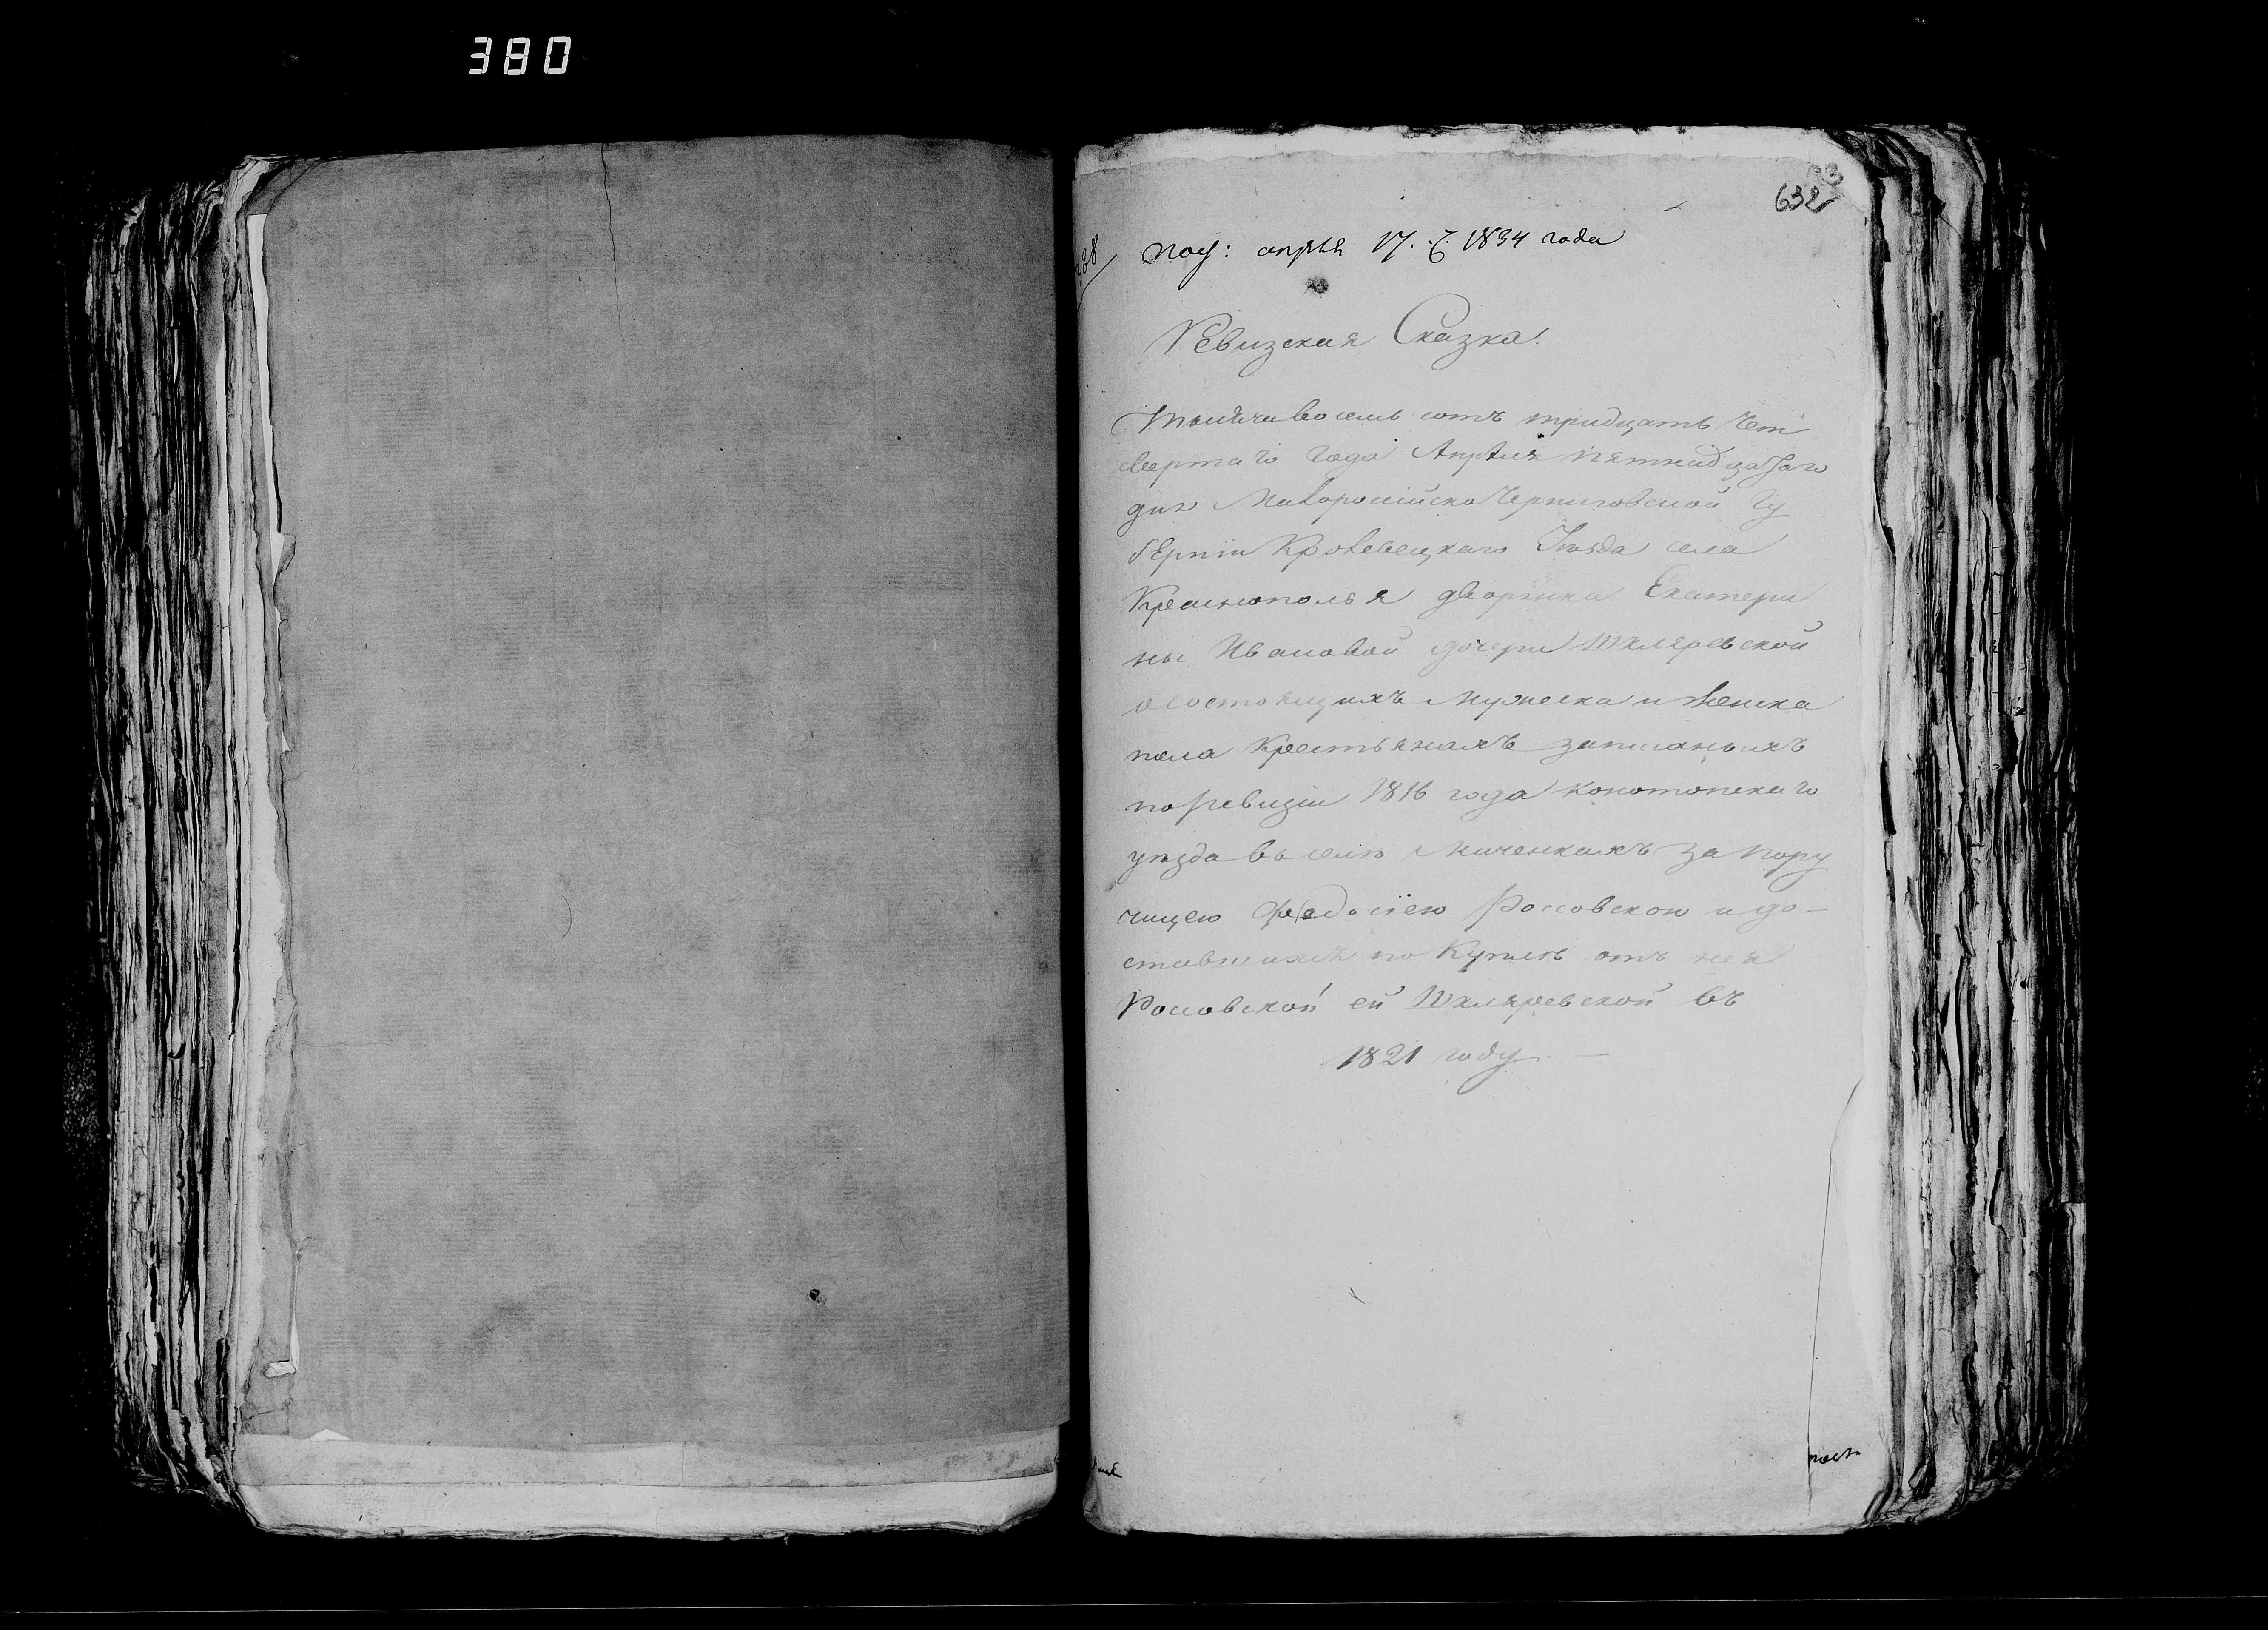 380
632
388
пол: апрѣля 17. 1834 года
Ревизская Сказка!
Тысяча восемь сотъ тридцать чет
вертаго года Апрѣля пятнадцатаго
дня Малоросійско Черниговской Гу
берніи Кролевецкаго Уѣзда села
Краснополья дворянка Екатери
ны Ивановой дочери Шкляревской
о состоящихъ Мужеска и Женска
пола Крестьянахъ записаныхъ
по ревизіи 1816 года Конотопскаго
уѣзда въ селѣ Миченкахъ за пору
чицею Феодосіею Россовскою и до-
ставшихся по Купле отъ нея
Россовской ей Шкляревской въ
1821 году. —